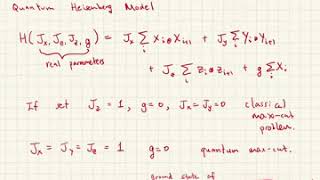 Quantum Heisenberg Model
H(Jx, Jy, Jz, g) = Jx Σi Xi⊗Xi+1 + Jy Σi Yi⊗Yi+1
real parameters
+ Jz Σi Zi⊗Zi+1 + g Σ Xi
If set Jz = 1, g=0, Jx=Jy=0 classical
max-cut
problem.
Jx = Jy = Jz = 1 g=0 quantum max-cut.
Ground state of